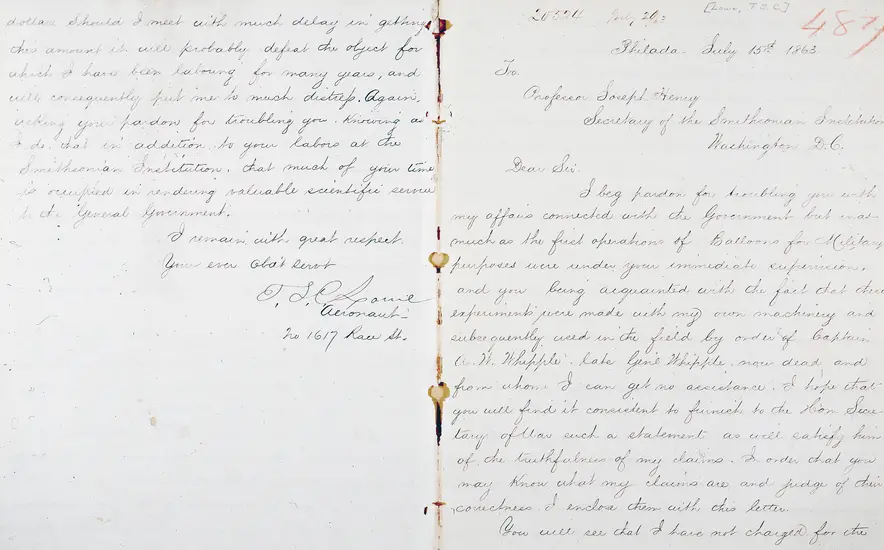 dollars Should I meet with much delay in getting
this amount it will probably defeat the object for
which I have been labouring for many years, and
will consequently put me to much distress. Again,
asking your pardon for troubling you. Knowing as
I do. that in addition to your labors at the
Smithsonian Institution. that much of your time
is occupied in rendering valuable scientific service
to the General Government.
I remain with great respect
Your ever Obdt Servt
T. S. C. Lowe
Aeronaut
No 1617 Race St.
20524 July 20, 63
[Lowe, T.S.C.]
487
Philada. July 15th 1863
To.
Professor Joseph Henry
Secretary of the Smithsonian Institution
Washington D.C.
Dear Sir.
I beg pardon for troubling you with
my affairs connected with the Government but inas-
much as the first operations of Balloons for Military
purposes were under your immediate supervision.
and you being acquainted with the fact that these
experiments were made with my own machinery and
subsequently used in the field by order of Captain
A. W. Whipple. late Genl Whipple. now dead and
from whom I can get no assistance. I hope that
you will find it consistent to furnish to the Hon. Secre-
tary of War such a statement as will satisfy him
of the truthfulness of my claims. In order that you
may know what my claims are and judge of their
correctness. I enclose them with this letter.
You will see that I have not charged for the